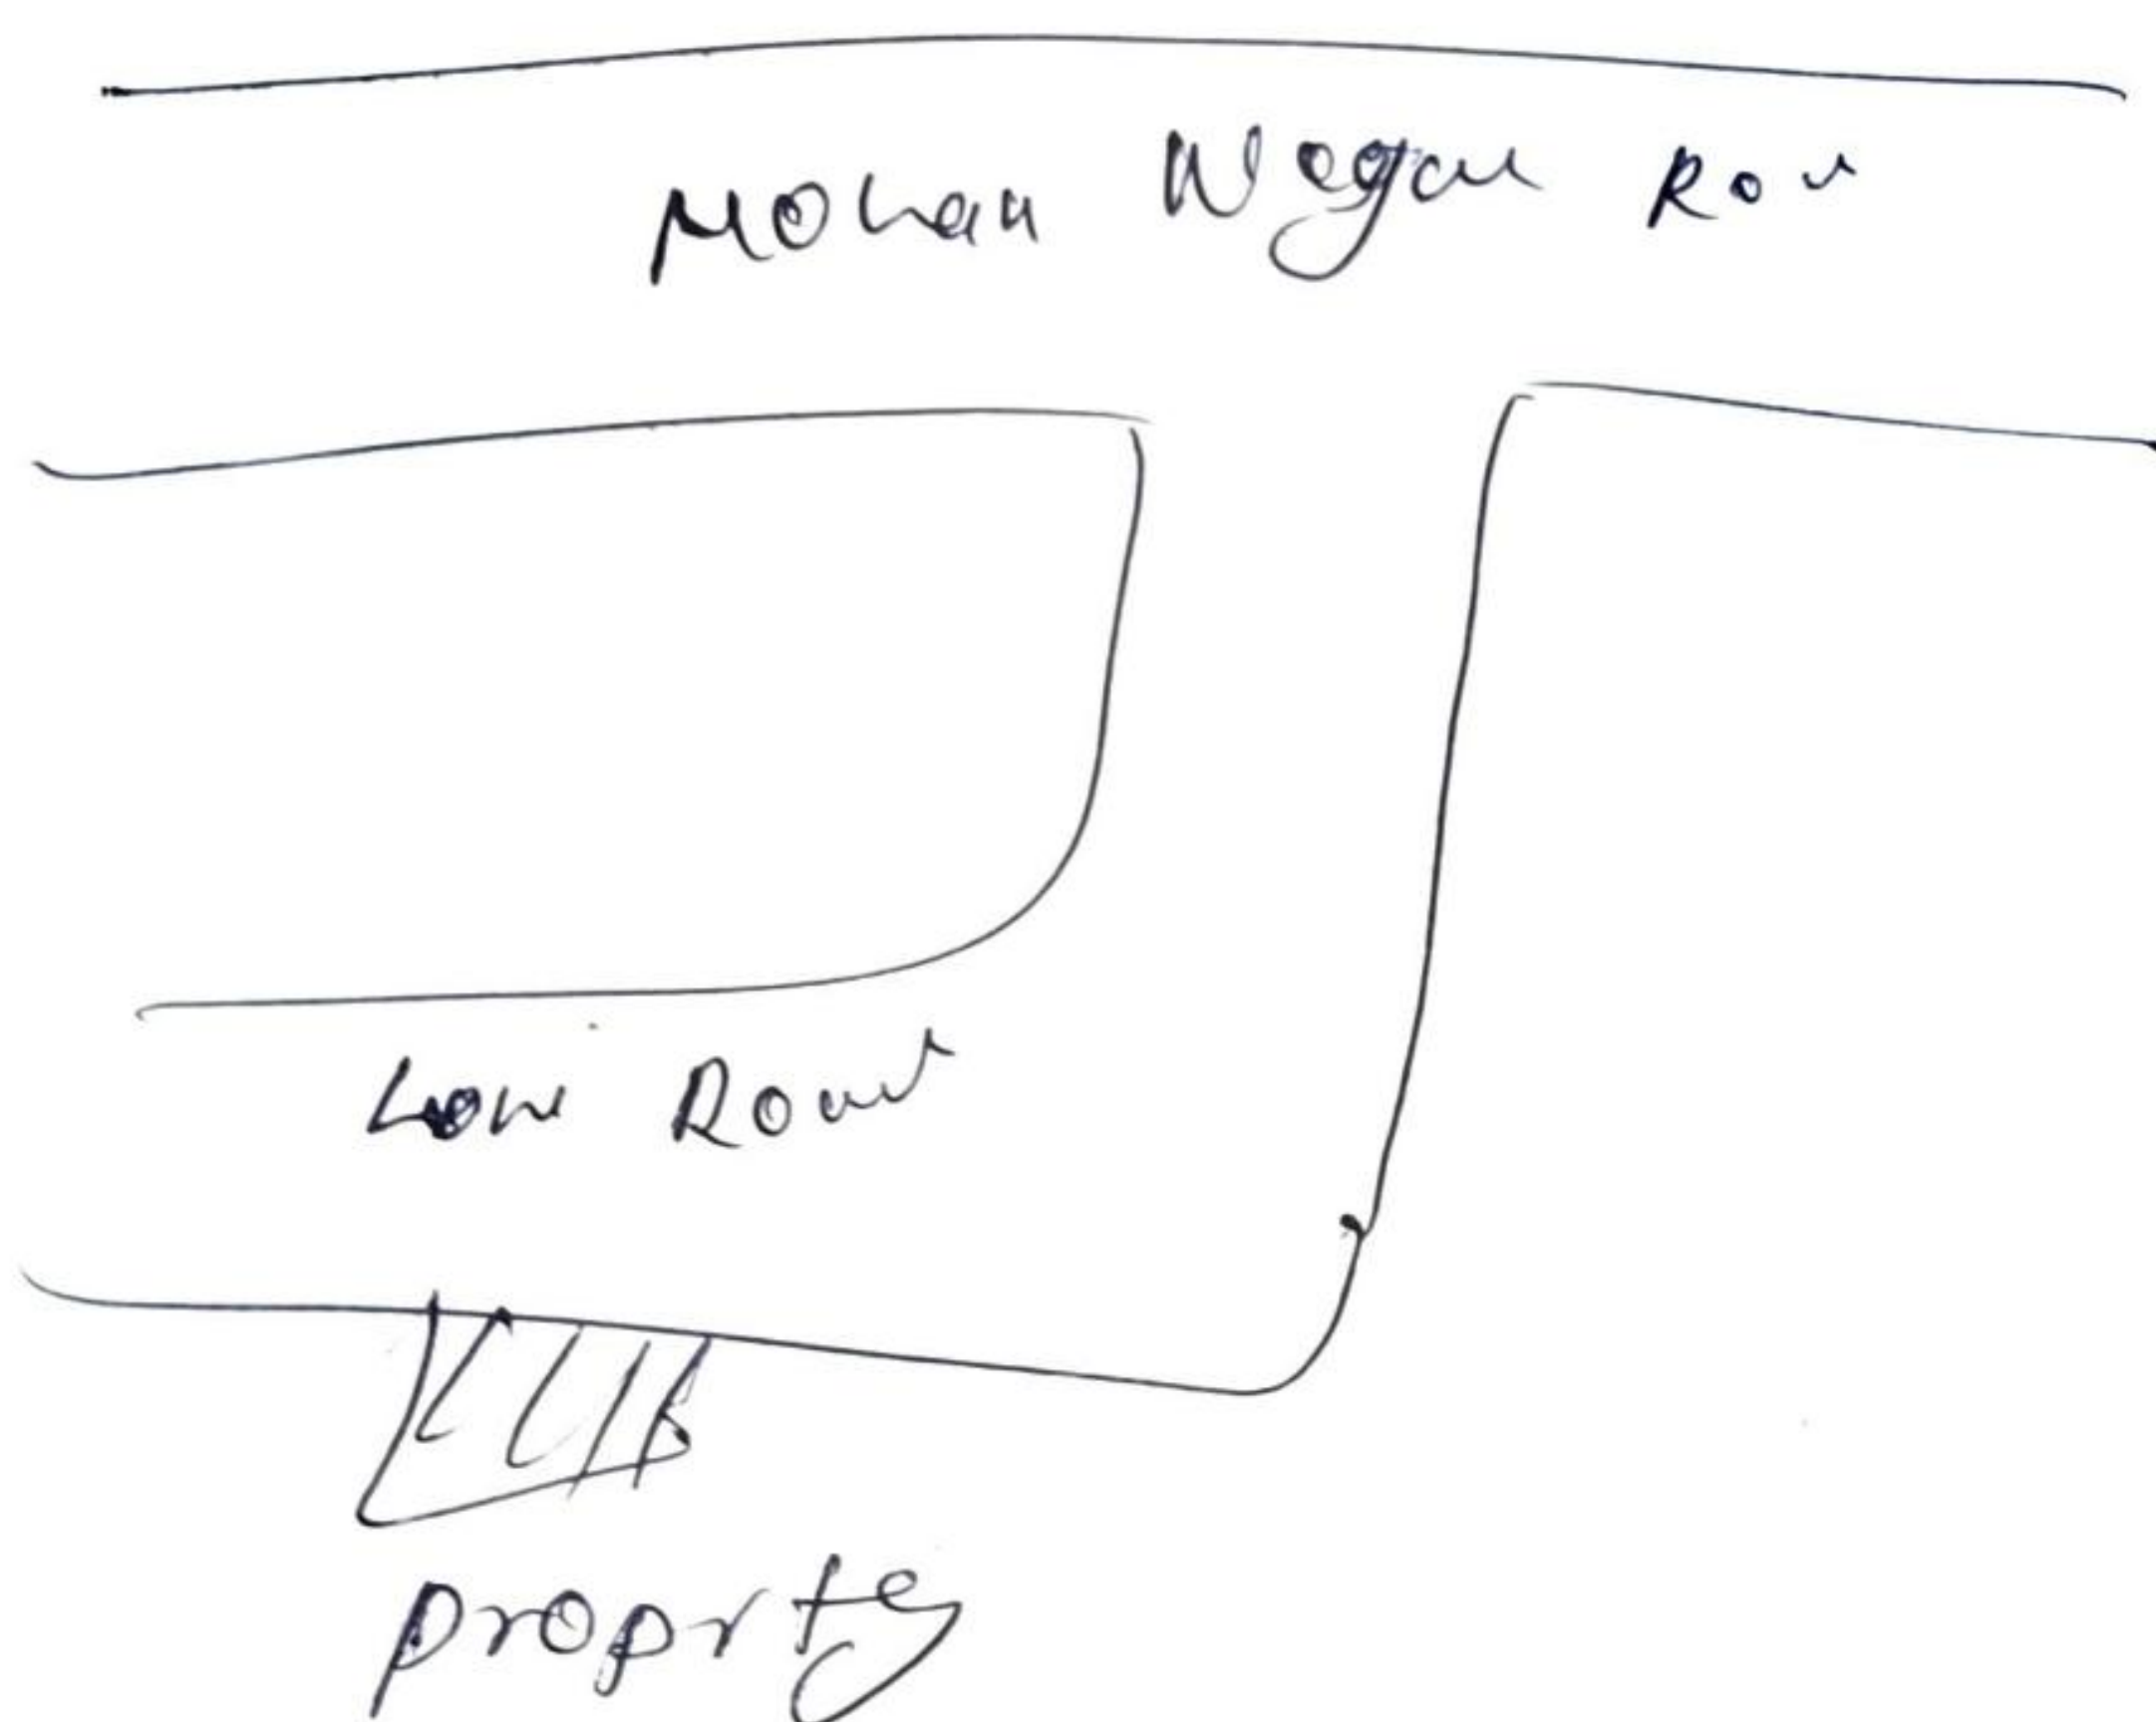 Mohan Nagar Roa
Low Road
proprty